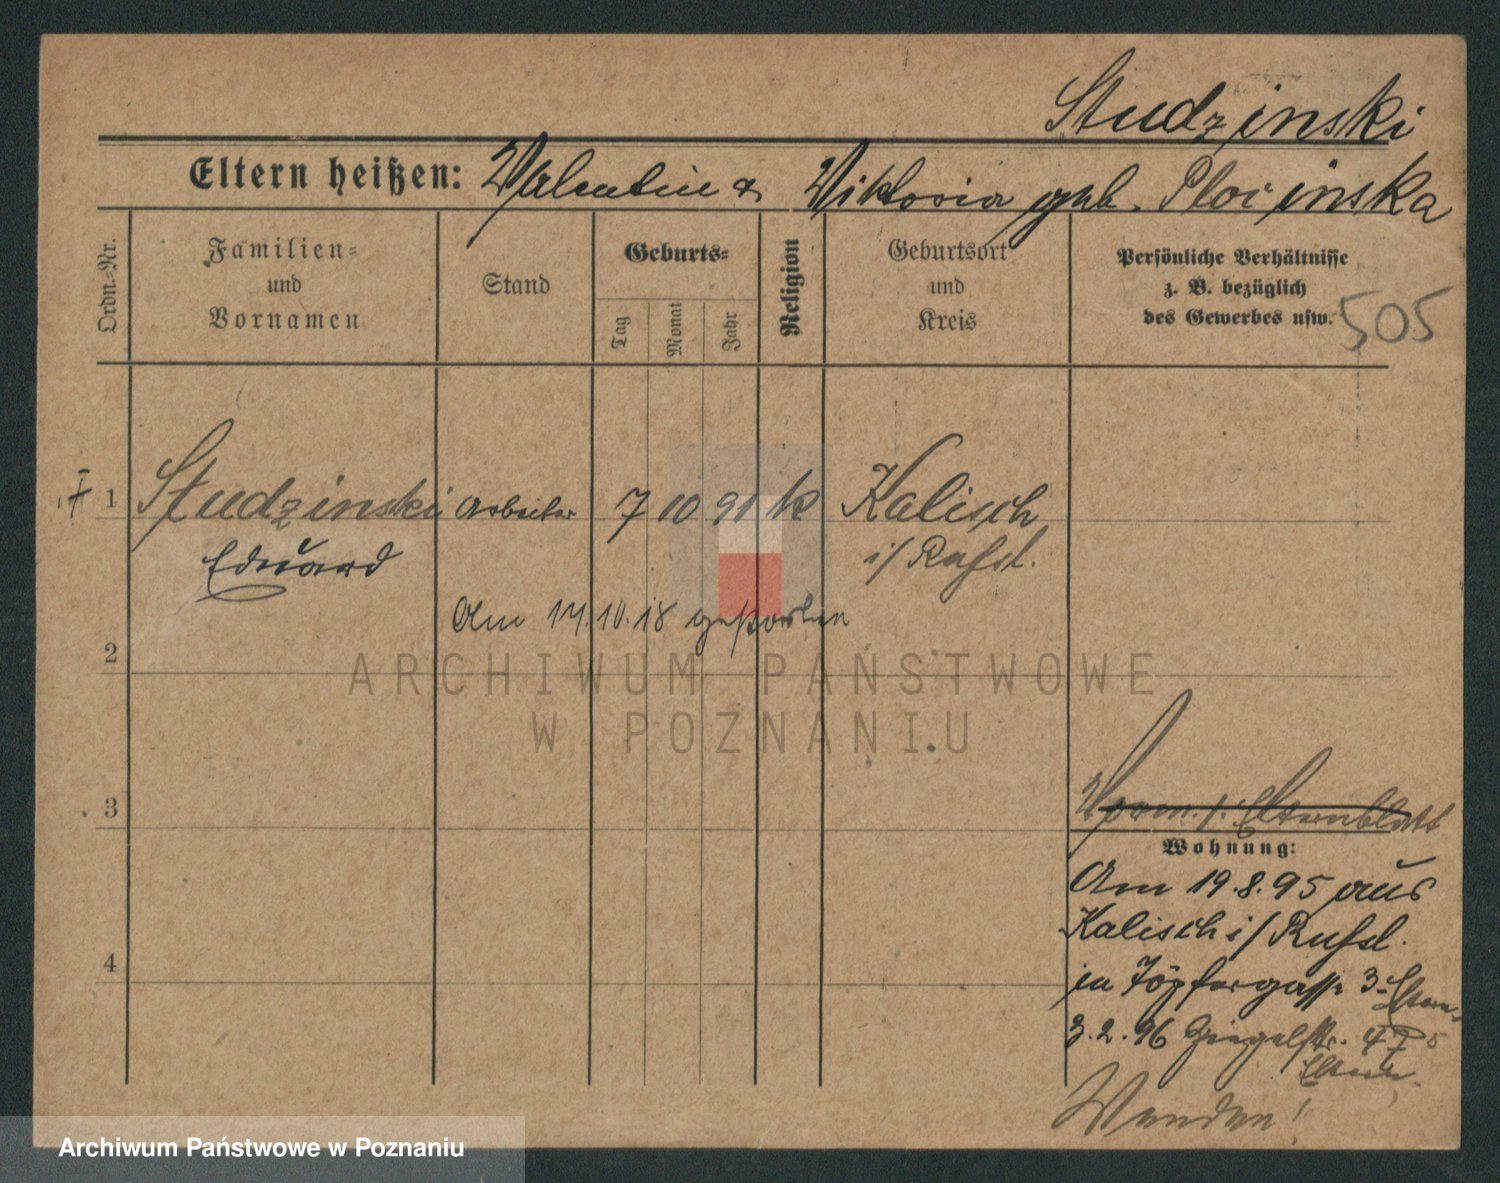 Studzinski
Eltern heißen: Valentin & Viktoria geb. Plocinska
Ordn.-Nr.
Familien-
und
Vornamen
Stand
Geburts-
Tag
Monat
Jahr
Religion
Geburtsort
und
Kreis
Persönliche Verhältnisse
z. B. bezüglich
des Gewerbes usw.
505
1 Studzinski Arbeiter 7 10 91 k Kalisch
Eduard i/ Rußl.
Am 14.10.18 gestorben
2
ARCHIWUM PAŃSTWOWE
W POZNANIU
3
Vorm. s. Elternblatt
Wohnung:
Am 19.8.95 aus
Kalisch i/ Rußl.
4
in Töpfergasse 3 Eltern
3.2.96 Ziegelstr. 47
Eltern
Wenden!
Archiwum Państwowe w Poznaniu